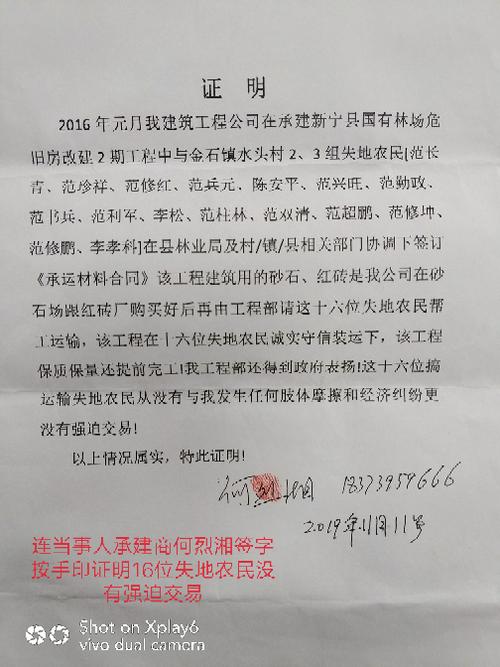 证 明
2016年元月我建筑工程公司在承建新宁县国有林场危
旧房改建2期工程中与金石镇水头村2、3组失地农民[范长
青、范珍祥、范修红、范兵元、陈安平、范兴旺、范勤政、
范书兵、范利军、李松、范柱林、范双清、范超鹏、范修坤、
范修鹏、李孝科]在县林业局及村/镇/县相关部门协调下签订
《承运材料合同》该工程建筑用的砂石、红砖是我公司在砂
石场跟红砖厂购买好后再由工程部请这十六位失地农民帮
工运输，该工程在十六位失地农民诚实守信装运下，该工程
保质保量还提前完工!我工程部还得到政府表扬!这十六位搞
运输失地农民从没有与我发生任何肢体摩擦和经济纠纷更
没有强迫交易!
以上情况属实，特此证明!
何烈湘 18373959666
2019年11月11号
连当事人承建商何烈湘签字
按手印证明16位失地农民没
有强迫交易
Shot on Xplay6
vivo dual camera